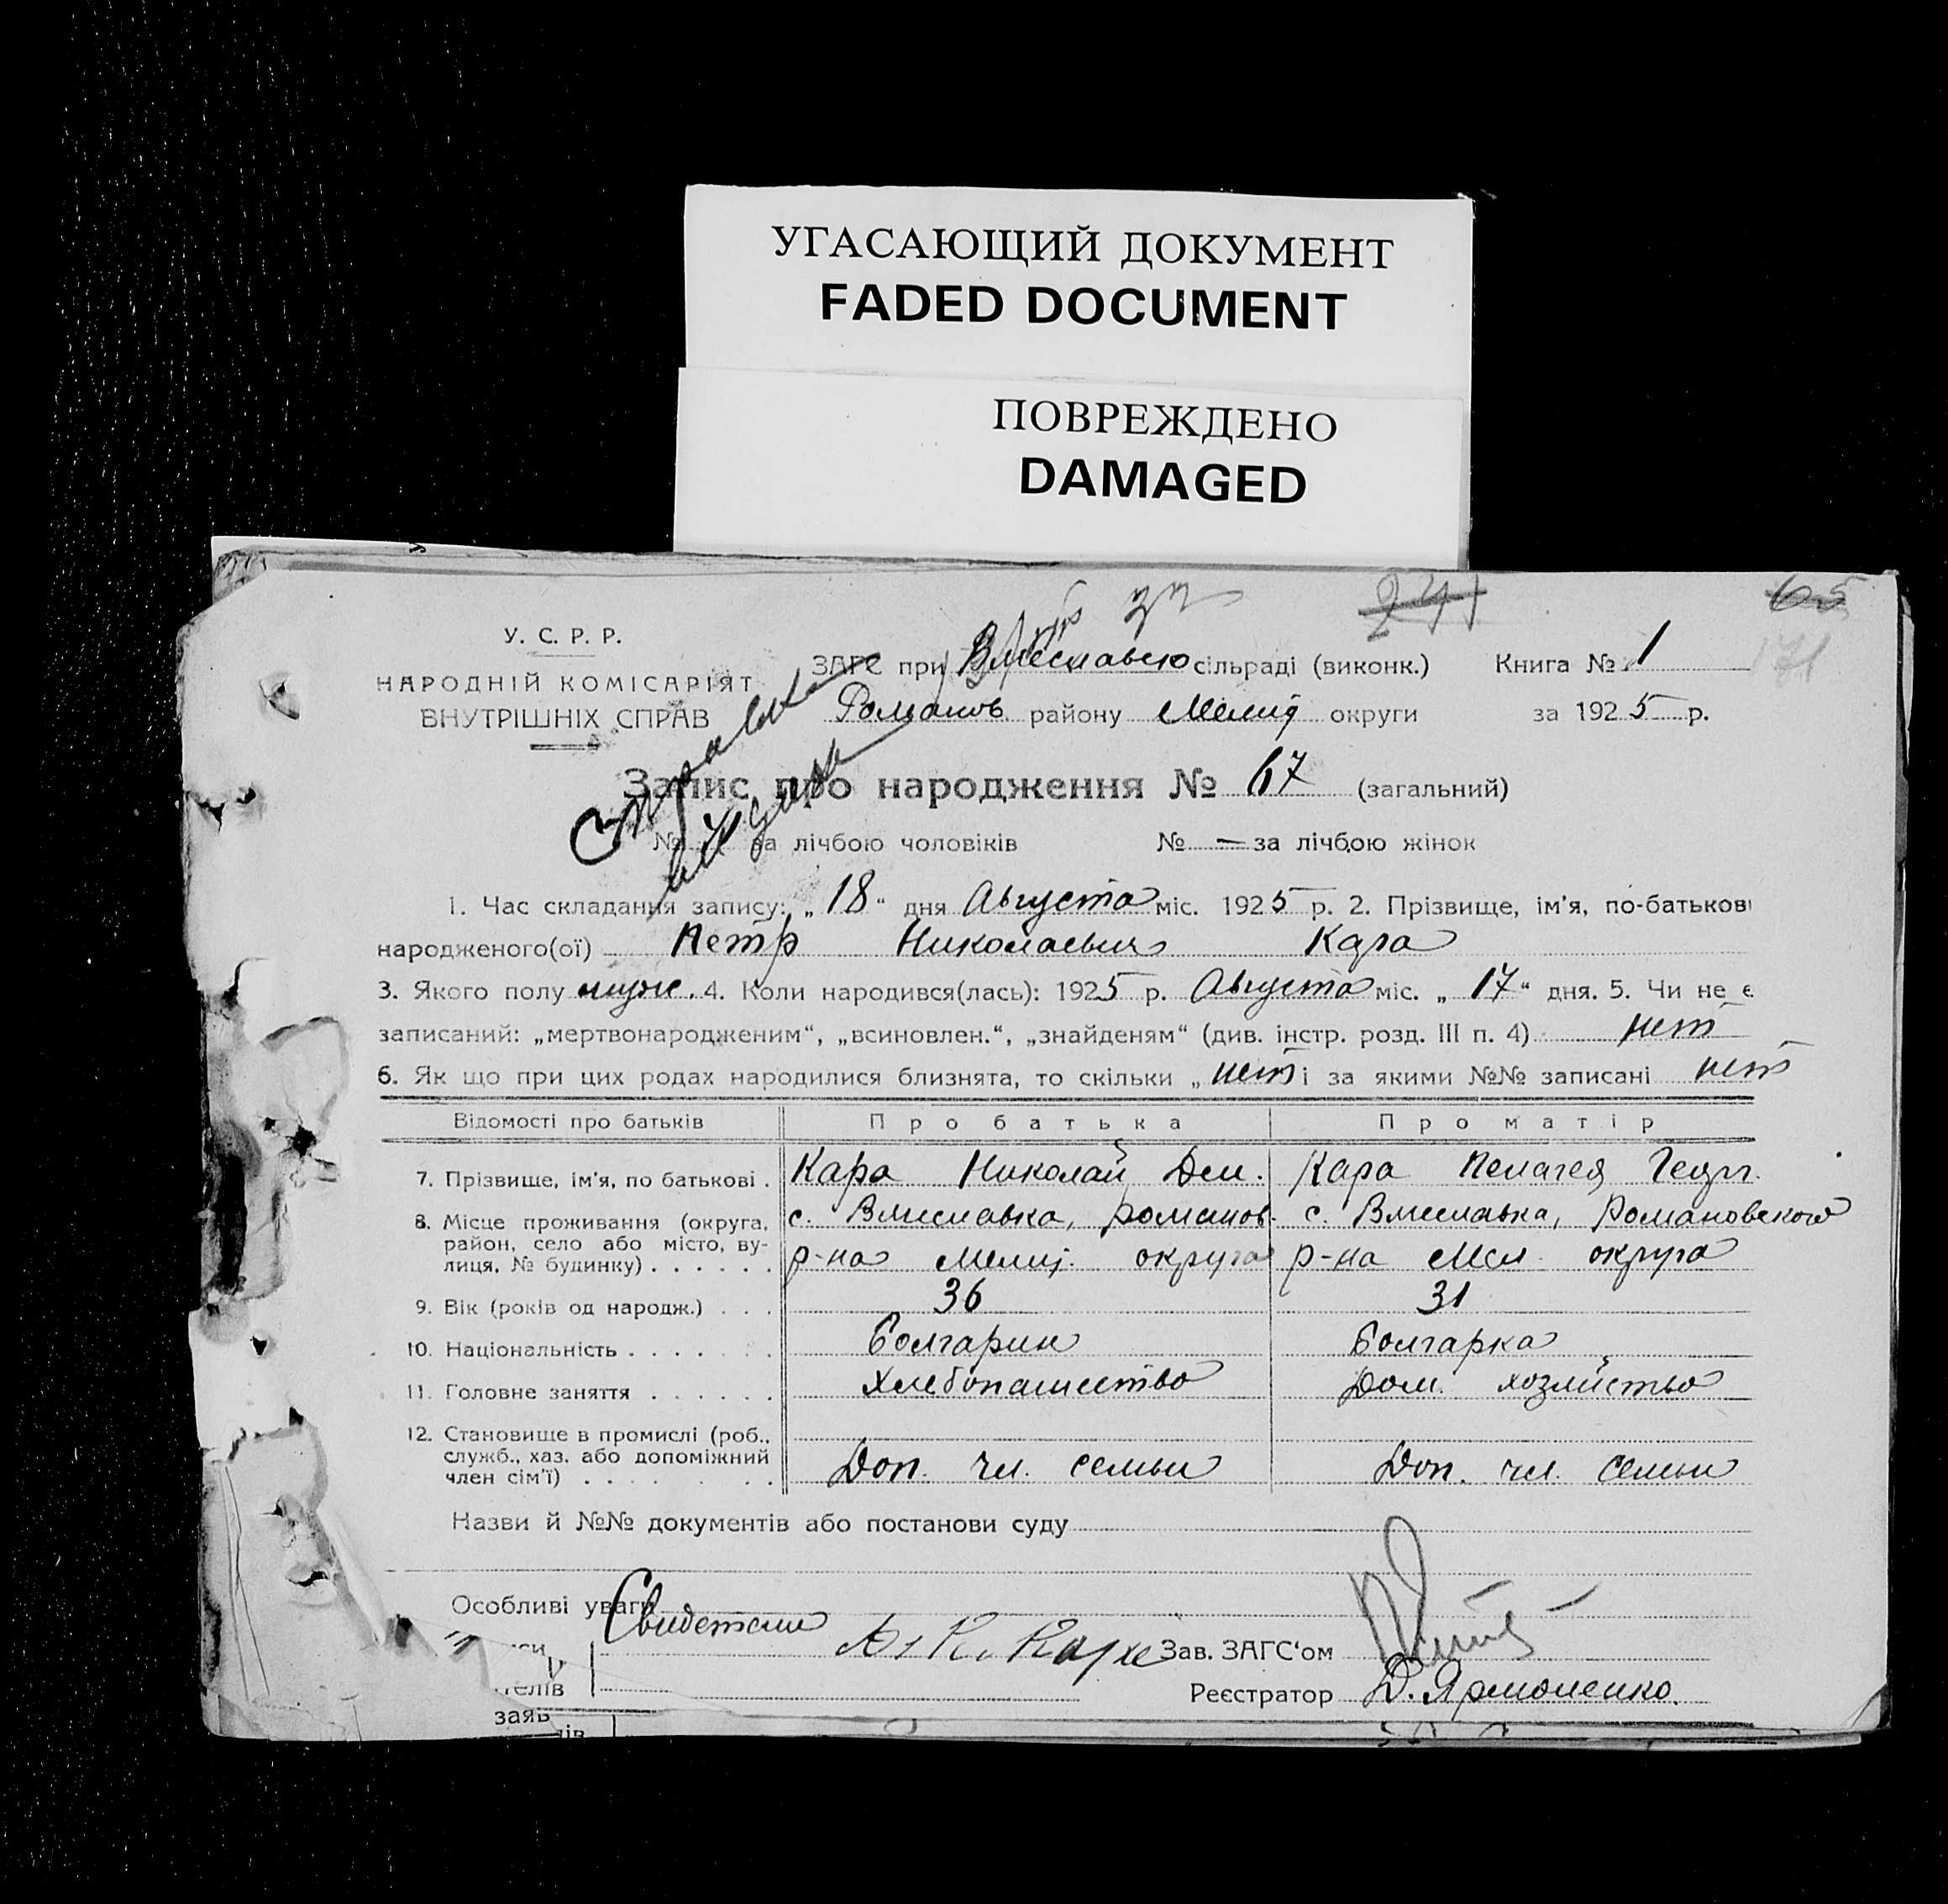 УГАСАЮЩИЙ ДОКУМЕНТ
FADED DOCUMENT
ПОВРЕЖДЕНО
DAMAGED
65
171
У. С. Р. Р.
НАРОДНІЙ КОМІСАРІЯТ
ВНУТРІШНІХ СПРАВ
ЗАГС при сільраді (виконк.) Книга № 1
Романов району Мелит округи за 1925 р.
Справка
видана
Запис про народження № 67 (загальний)
№ за лічбою чоловіків № — за лічбою жінок
1. Час складання запису: „ 18 “ дня Августа міс. 1925 р. 2. Прізвище, ім'я, по-батькові
народженого(ої) Петр Николаевич Кара
3. Якого полу муж. 4. Коли народився(лась): 1925 р. Августа міс. „ 17 “ дня. 5. Чи не є
записаний: „мертвонародженим“, „всиновлен.“, „знайденям“ (див. інстр. розд. III п. 4) нет
6. Як що при цих родах народилися близнята, то скільки „ нет і за якими №№ записані нет
Відомості про батьків Про батька Про матір
7. Прізвище, ім'я, по батькові . Кара Николай Дм. Кара Пелагея Георг.
8. Місце проживання (округа, с. Вячеславка, романов. с. Вячеславка, Романовского
район, село або місто, ву-
лиця, № будинку) . . . . . . р-на Мелит. округа р-на Мел. округа
9. Вік (років од народж.) . . . 36 31
10. Національність . . . . . . . Болгарин Болгарка
11. Головне заняття . . . . . . Хлебопашество Дом. хозяйство
12. Становище в промислі (роб.,
служб., хаз. або допоміжний
член сім'ї) . . . . . . . . Доп. чл. семьи Доп. чл. семьи
Назви й №№ документів або постанови суду
Особливі уваги
Свидетели
Зав. ЗАГС‘ом
Реєстратор Д. Ярмоленко.
заяв